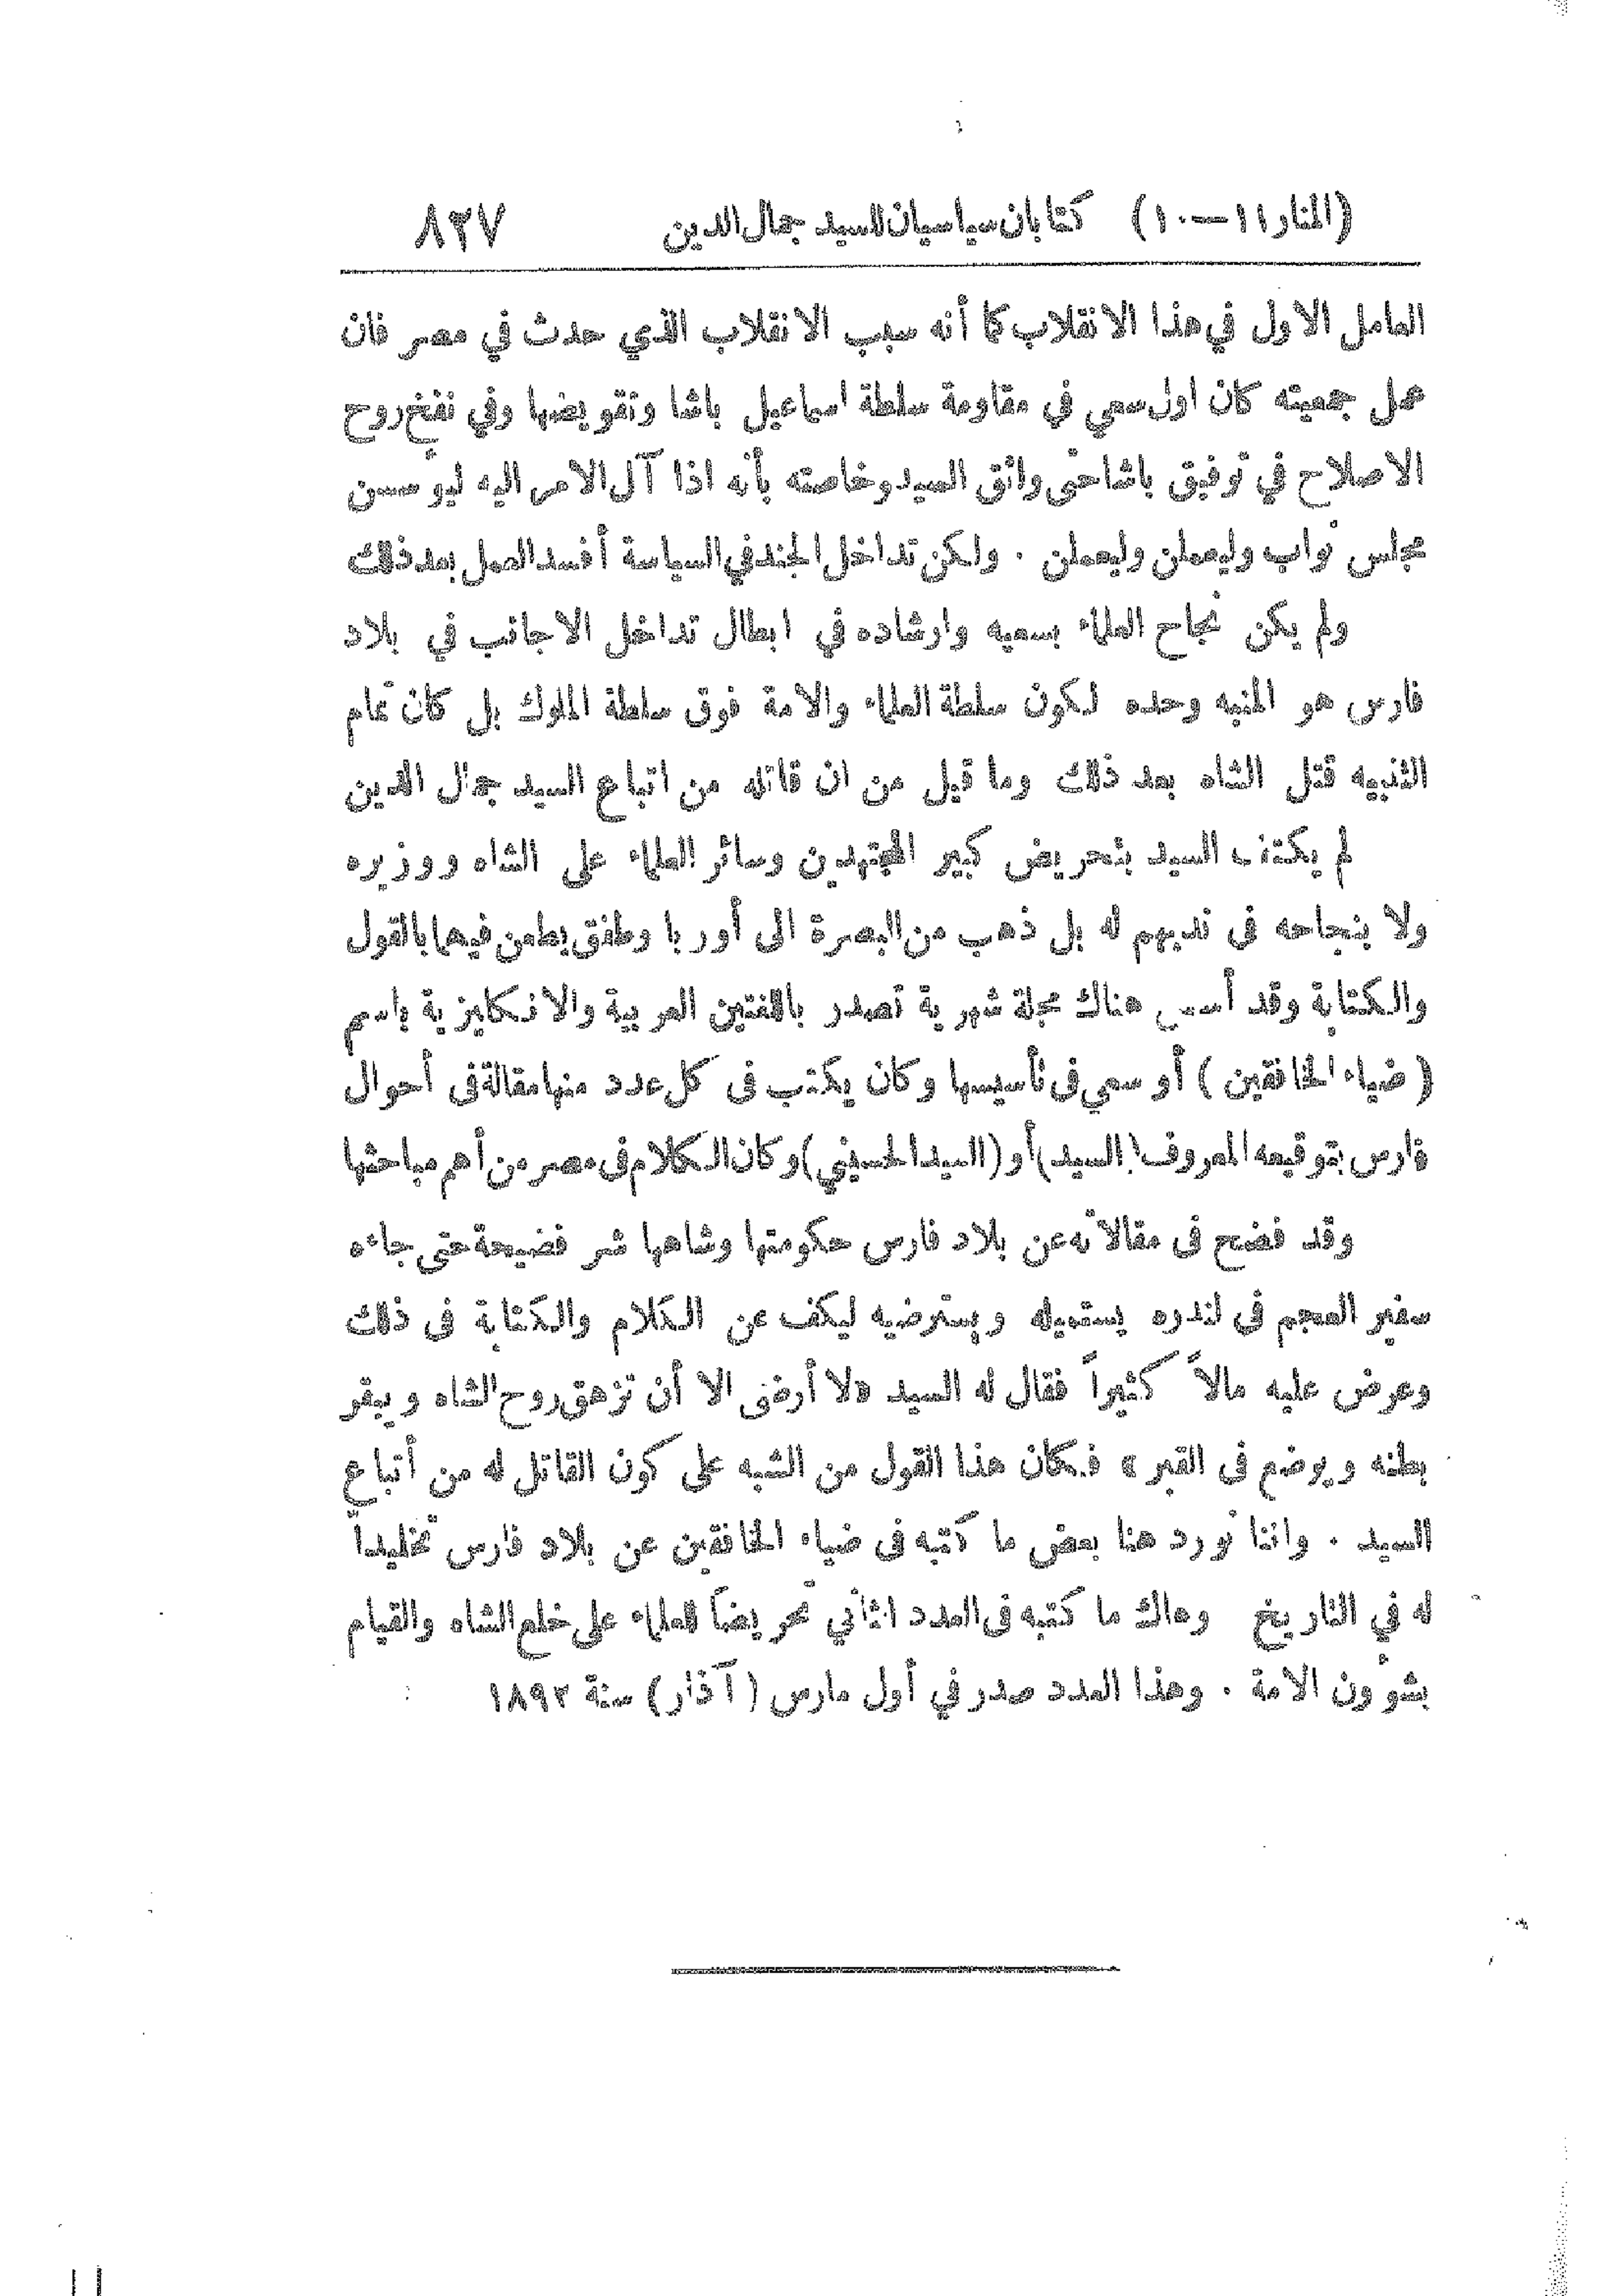 (المنار ١١—١٠) كتابان سياسيان للسيد جمال الدين ٨٢٧
العامل الاول في هذا الانقلاب كما أنه سبب الانقلاب الذي حدث في مصر فان
عمل جمعيته كان اول سعي في مقاومة سلطة اسماعيل باشا وتقويضها وفي نفخ روح
الاصلاح في توفيق باشا حتى واثق السيد وخاصته بأنه اذا آل الامر اليه ليؤسسن
مجلس نواب وليعملن وليعملن . ولكن تداخل الجند في السياسة أفسد العمل بعد ذلك
ولم يكن نجاح العلماء بسعيه وارشاده في ابطال تداخل الاجانب في بلاد
فارس هو المنبه وحده لكون سلطة العلماء والامة فوق سلطة الملوك بل كان تمام
التنبيه قتل الشاه بعد ذلك وما قيل من ان قاتله من اتباع السيد جمال الدين
لم يكتف السيد بتحريض كبير المجتهدين وسائر العلماء على الشاه ووزيره
ولا بنجاحه فى ندبهم له بل ذهب من البصرة الى أوربا وطفق يطعن فيها بالقول
والكتابة وقد أسس هناك مجلة شهرية تصدر باللغتين العربية والانكليزية باسم
( ضياء الخافقين ) أو سعي فى تأسيسها وكان يكتب فى كل عدد منها مقالة فى أحوال
فارس بتوقيعه المعروف ( السيد ) أو ( السيد الحسيني ) وكان الكلام فى مصر من أهم مباحثها
وقد فضح فى مقالاته عن بلاد فارس حكومتها وشاهها شر فضيحة حتى جاءه
سفير العجم فى لندره يستميله ويسترضيه ليكف عن الكلام والكتابة فى ذلك
وعرض عليه مالاً كثيراً فقال له السيد «لا أرضى الا أن تزهق روح الشاه ويبقر
بطنه ويوضع فى القبر» فكان هذا القول من الشبه على كون القاتل له من أتباع
السيد . واننا نورد هنا بعض ما كتبه فى ضياء الخافقين عن بلاد فارس تخليداً
له في التاريخ وهاك ما كتبه فى العدد الثاني تحريضاً للعلماء على خلع الشاه والقيام
بشؤون الامة . وهذا العدد صدر في أول مارس ( آذار ) سنة ١٨٩٢